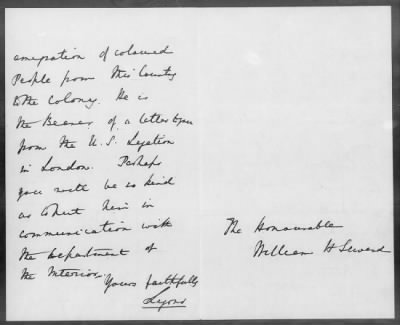 emigration of coloured
People from this Country
to the Colony. He is
the Bearer of a letter to you
from the U.S. Legation
in London. Perhaps
you will be so kind
as to put him in
communication with
the Department of
the Interior.
Yours faithfully
Lyons
The Honourable
William H Seward